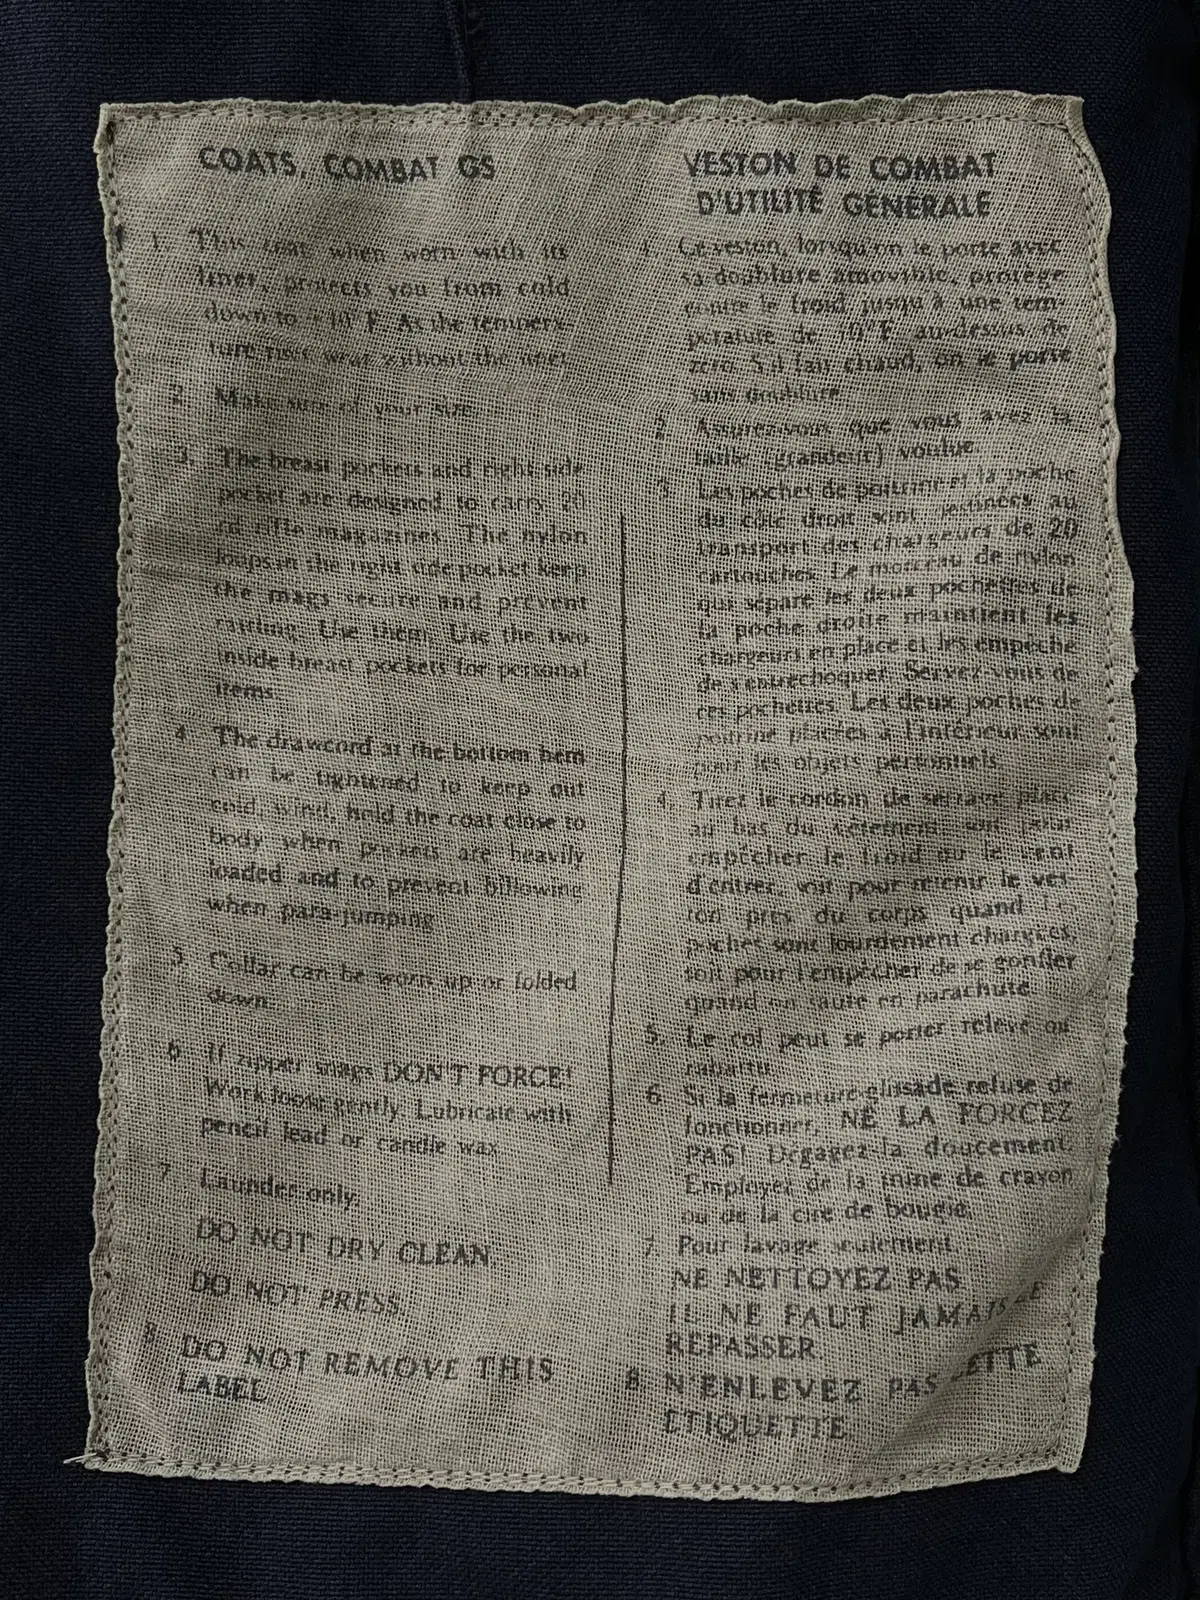 COATS, COMBAT GS
1. This coat when worn with its
liner, protects you from cold
down to 10° F. As the tempera-
ture rises wear without the liner.
2. Make sure of your size
3. The breast pockets and right side
pocket are designed to carry 20
rd rifle magazines. The nylon
loops in the right one pocket keep
the mags secure and prevent
rattling. Use them. Use the two
inside breast pockets for personal
items.
4. The drawcord at the bottom hem
can be tightened to keep out
cold, wind, hold the coat close to
body when pockets are heavily
loaded and to prevent billowing
when para-jumping
5. Collar can be worn up or folded
down.
6 If zipper snags DON'T FORCE!
Work loose gently. Lubricate with
pencil lead or candle wax
7 Launder only.
DO NOT DRY CLEAN.
DO NOT PRESS.
8 DO NOT REMOVE THIS
LABEL
VESTON DE COMBAT
D'UTILITÉ GÉNÉRALE
1. Ce veston, lorsqu'on le porte avec
sa doublure amovible, protège
contre le froid jusqu'à une tem-
pérature de 10° F au-dessus de
zéro. S'il fait chaud, on le porte
sans doublure.
2. Assurez-vous que vous avez la
taille (grandeur) voulue.
3. Les poches de poitrine et la poche
du côté droit sont destinées au
transport des chargeurs de 20
cartouches. Le morceau de nylon
qui sépare les deux pochettes de
la poche droite maintient les
chargeurs en place et les empêche
de s'entrechoquer. Servez-vous de
ces pochettes. Les deux poches de
poitrine placées à l'intérieur sont
pour les objets personnels.
4. Tirez le cordon de serrage placé
au bas du vêtement soit pour
empêcher le froid ou le vent
d'entrer, soit pour retenir le ves-
ton près du corps quand les
poches sont lourdement chargées,
soit pour l'empêcher de se gonfler
quand on saute en parachute
5. Le col peut se porter relevé ou
rabattu.
6 Si la fermeture-glissade refuse de
fonctionner, NE LA FORCEZ
PAS! Dégagez-la doucement.
Employez de la mine de crayon
ou de la cire de bougie.
7. Pour lavage seulement.
NE NETTOYEZ PAS
IL NE FAUT JAMAIS LE
REPASSER
8 N'ENLEVEZ PAS CETTE
ÉTIQUETTE